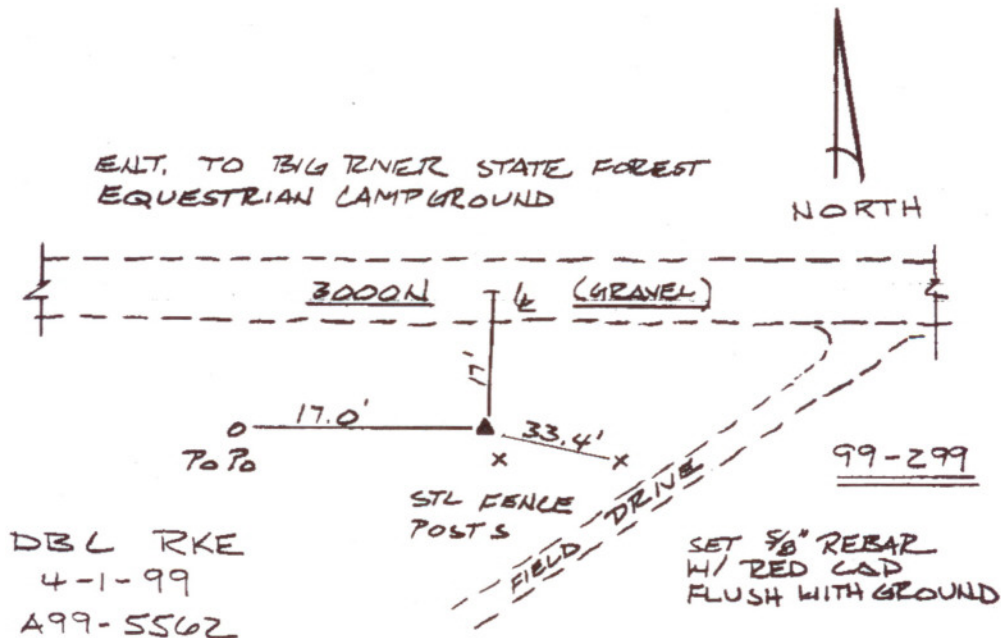 ENT. TO BIG RIVER STATE FOREST
EQUESTRIAN CAMPGROUND
NORTH
3000N ℄ (GRAVEL)
17'
17.0'
33.4'
PoPo
STL FENCE
POSTS
FIELD DRIVE
99-299
DBL RKE
4-1-99
A99-5562
SET 5/8" REBAR
W/ RED CAP
FLUSH WITH GROUND